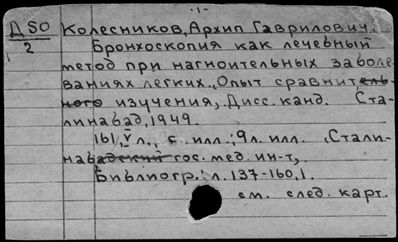 -1-
Д50
2
Колесников, Архип Гаврилович.
Бронхоскопия как лечебный
метод при нагноительных заболе-
ваниях легких. Опыт сравнитель-
ного изучения. Дисс. канд. Ста-
линабад, 1949.
161, V л., с илл.; 9 л. илл. (Стали-
набадский гос. мед. ин-т).
Библиогр.: л. 137-160, 1.
см. след. карт.